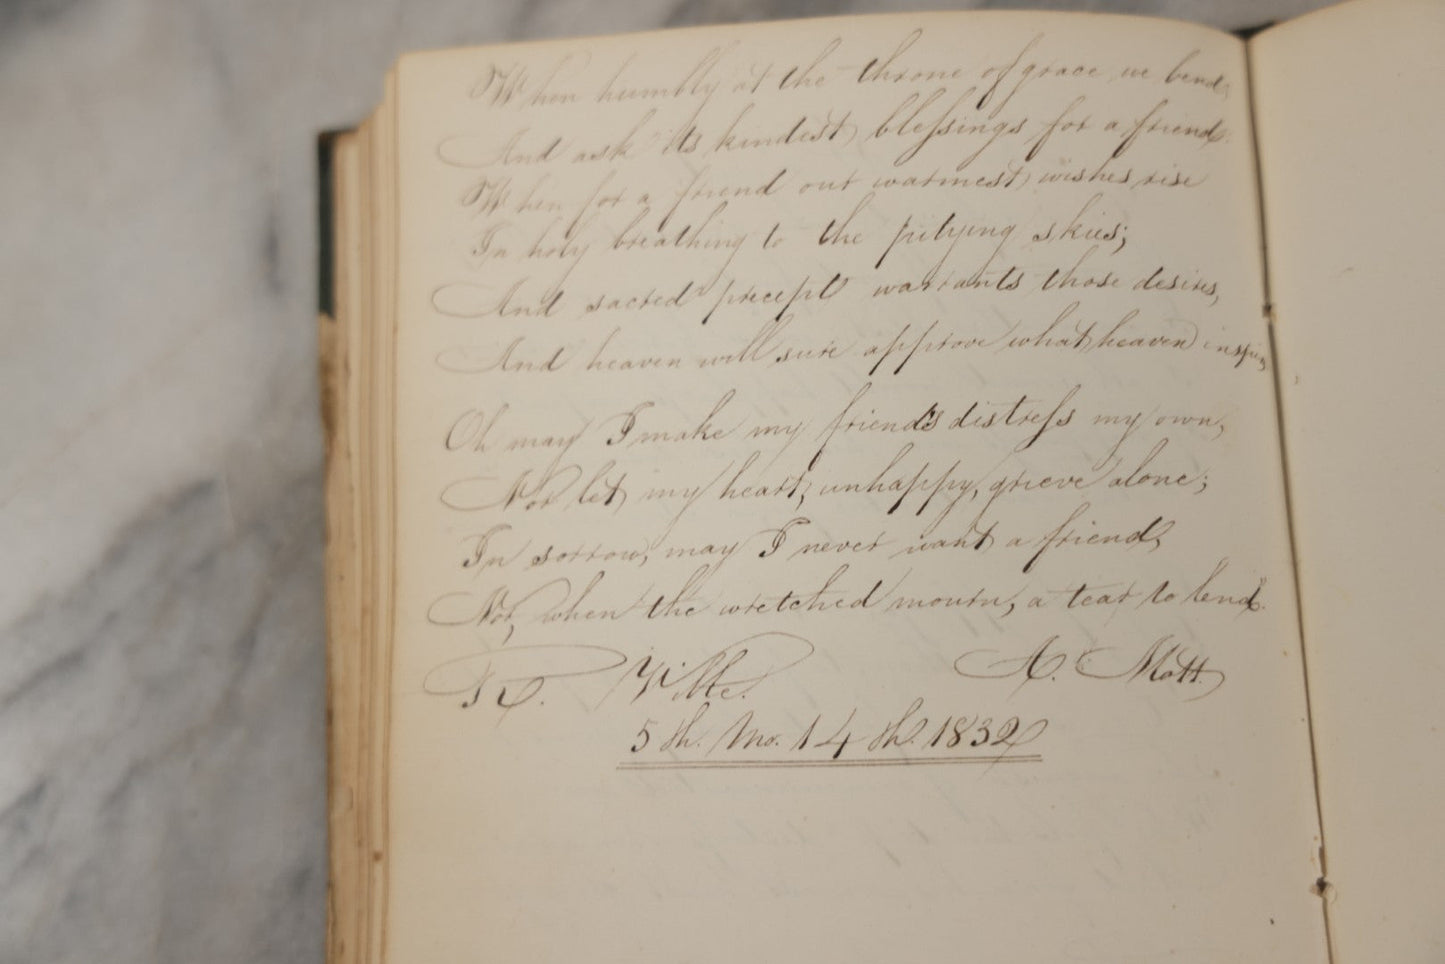 When humbly at the throne of grace we bend,
And ask its kindest blessings for a friend.
When for a friend our warmest wishes rise
In holy breathing to the pitying skies;
And sacred precept warrants those desires,
And heaven will sure approve what heaven inspires,
Oh may I make my friend's distress my own,
Nor let my heart, unhappy, grieve alone;
In sorrow, may I never want a friend,
Nor, when the wretched mourn, a tear to lend.
Ville. A. Mott.
5th. Mo. 14th. 1832